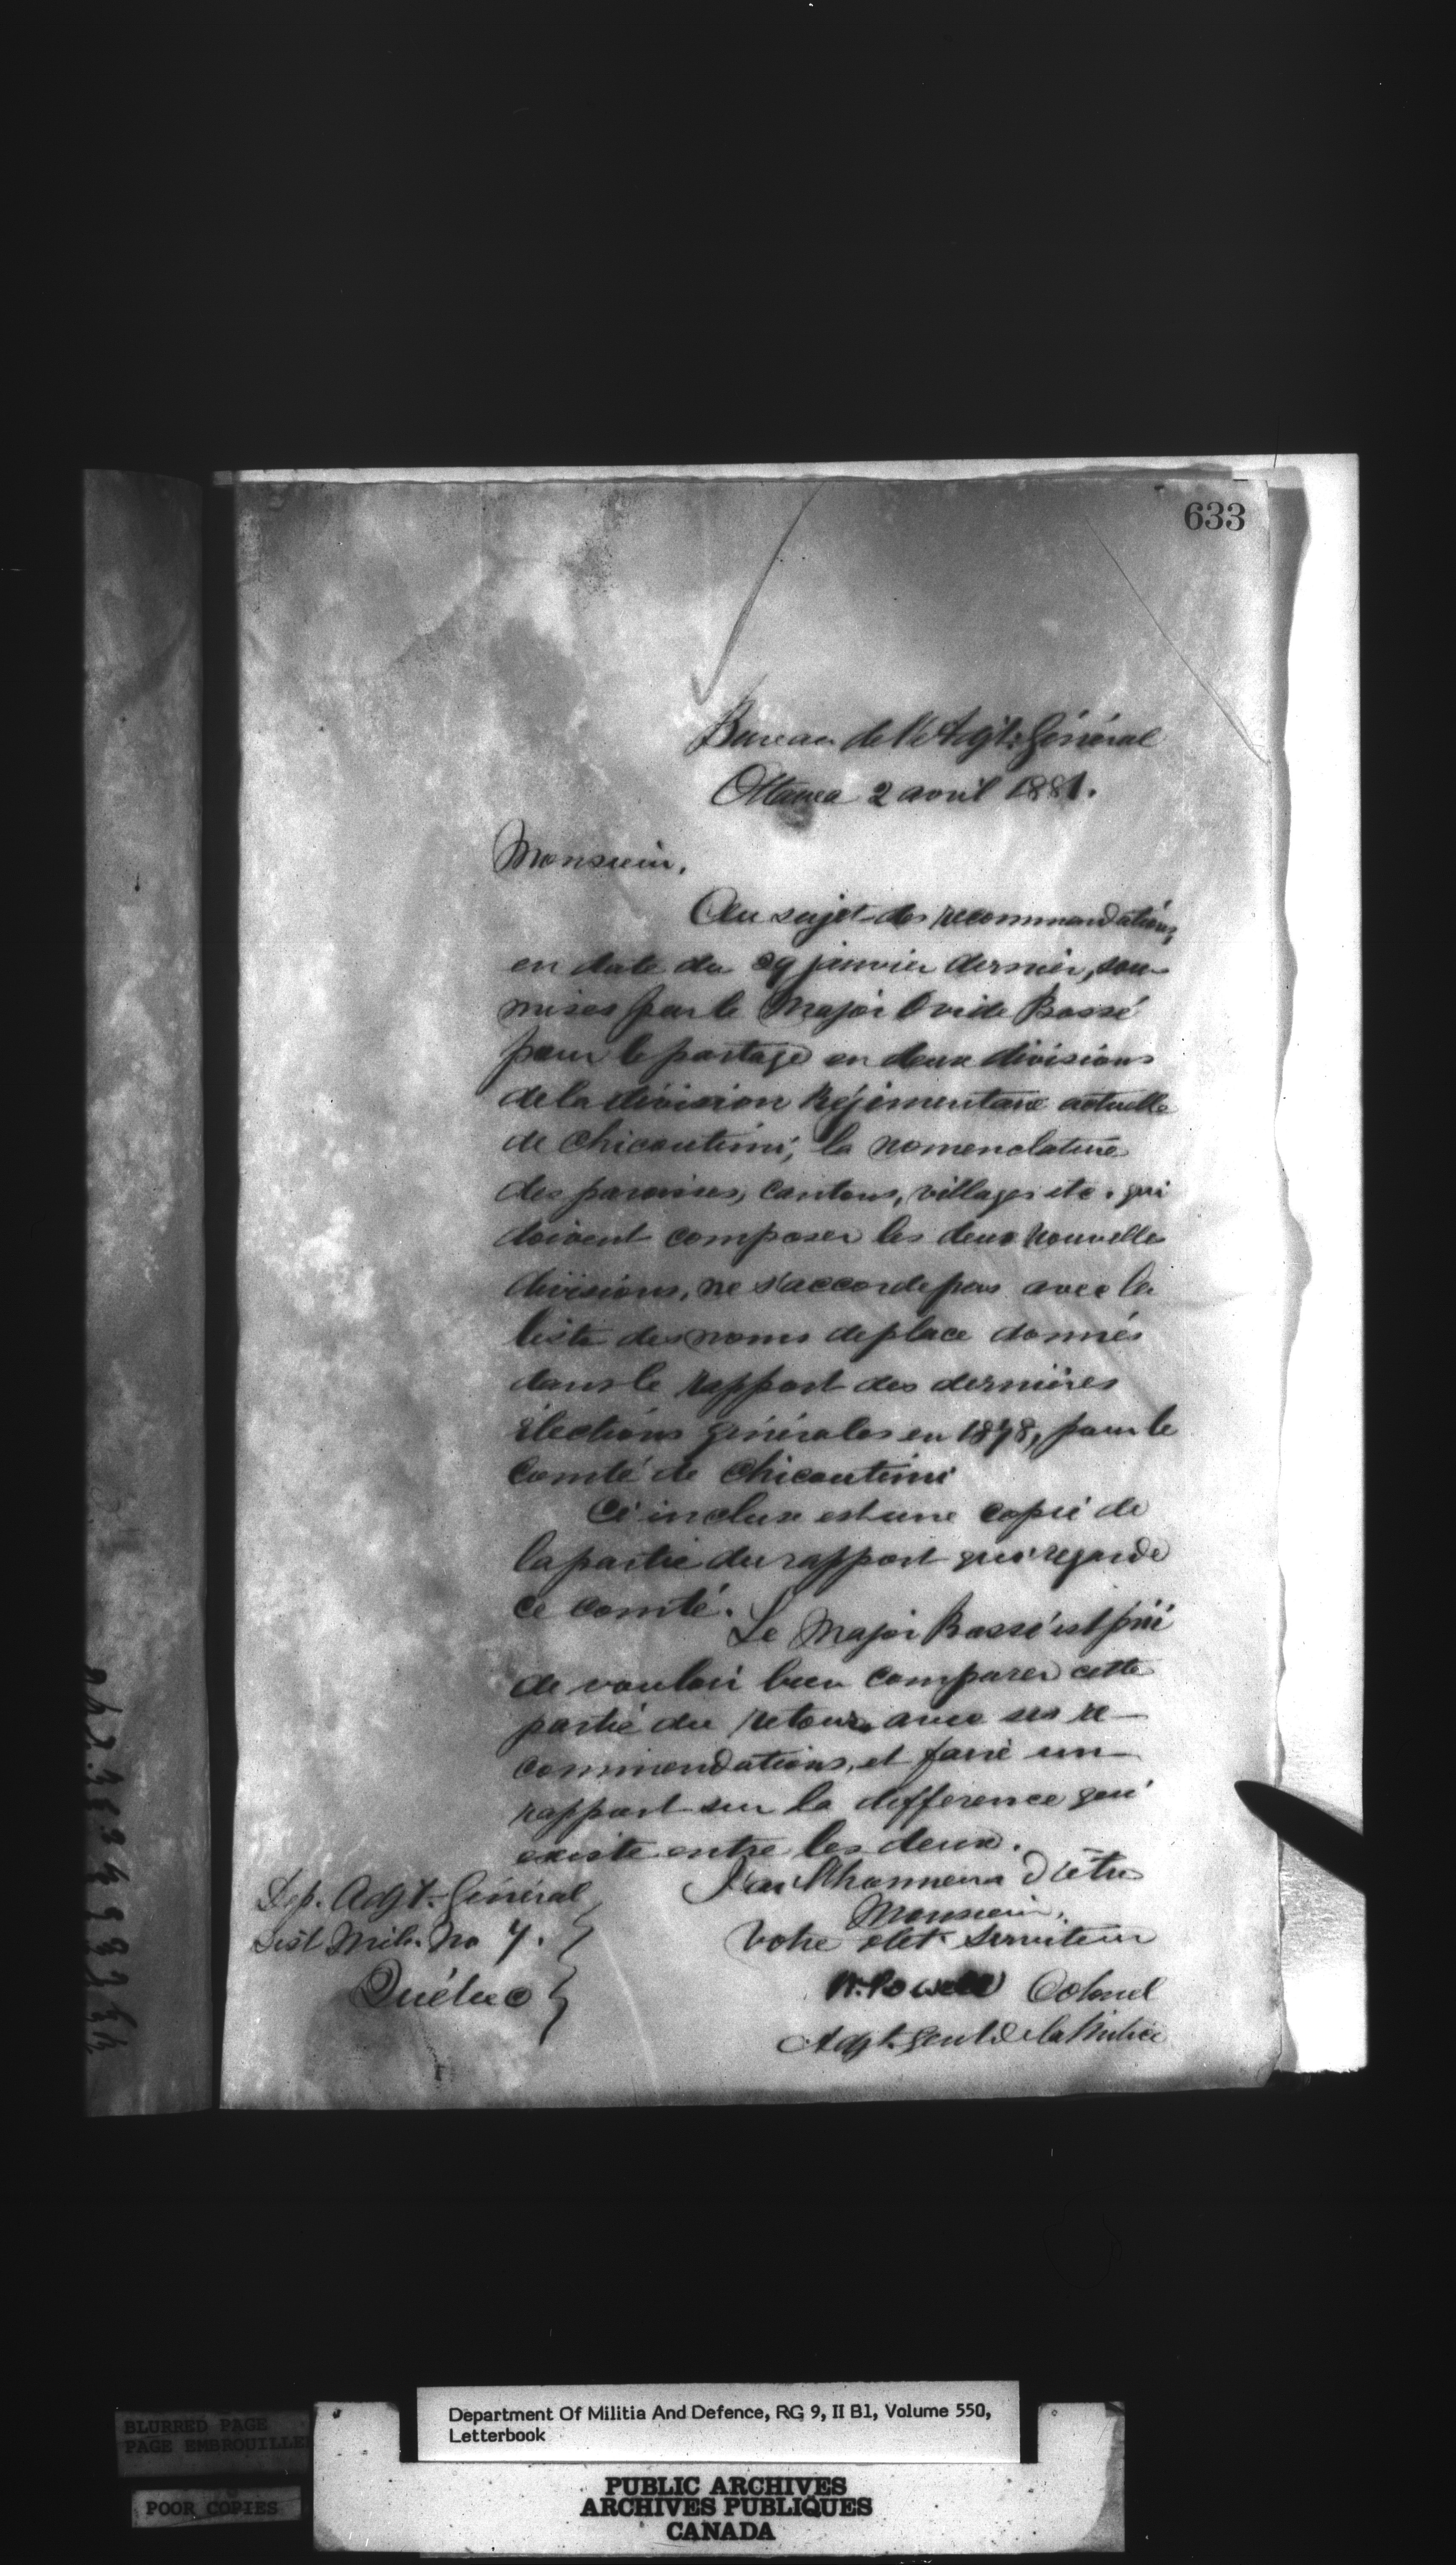 633
Bureau de l'Adjt. Général
Ottawa 2 avril 1881.
Monsieur,
Au sujet des recommandations,
en date du 29 janvier dernier, sou-
mises par le Major Ovide Bossé
pour le partage en deux divisions
de la division Régimentaire actuelle
de Chicoutimi, la nomenclature
des paroisses, cantons, villages etc. qui
doivent composer les deux nouvelles
divisions, ne s'accorde pas avec la
liste des noms de place donnés
dans le rapport des dernières
élections générales en 1878, pour le
Comté de Chicoutimi
Ci incluse est une copie de
la partie du rapport qui regarde
ce comté.
Le Major Bossé est prié
de vouloir bien comparer cette
partie du retour avec ses re-
commendations, et faire un
rapport sur la difference qui
existe entre les deux.
J'ai l'honneur d'être
Monsieur,
Votre obt. Serviteur
W. Powell Colonel
Adjt. Genl de la Milice
Dep. Adjt. Général
Dist Mil. No 7.
Québec
BLURRED PAGE
PAGE EMBROUILLE
POOR COPIES
Department Of Militia And Defence, RG 9, II B1, Volume 550,
Letterbook
PUBLIC ARCHIVES
ARCHIVES PUBLIQUES
CANADA